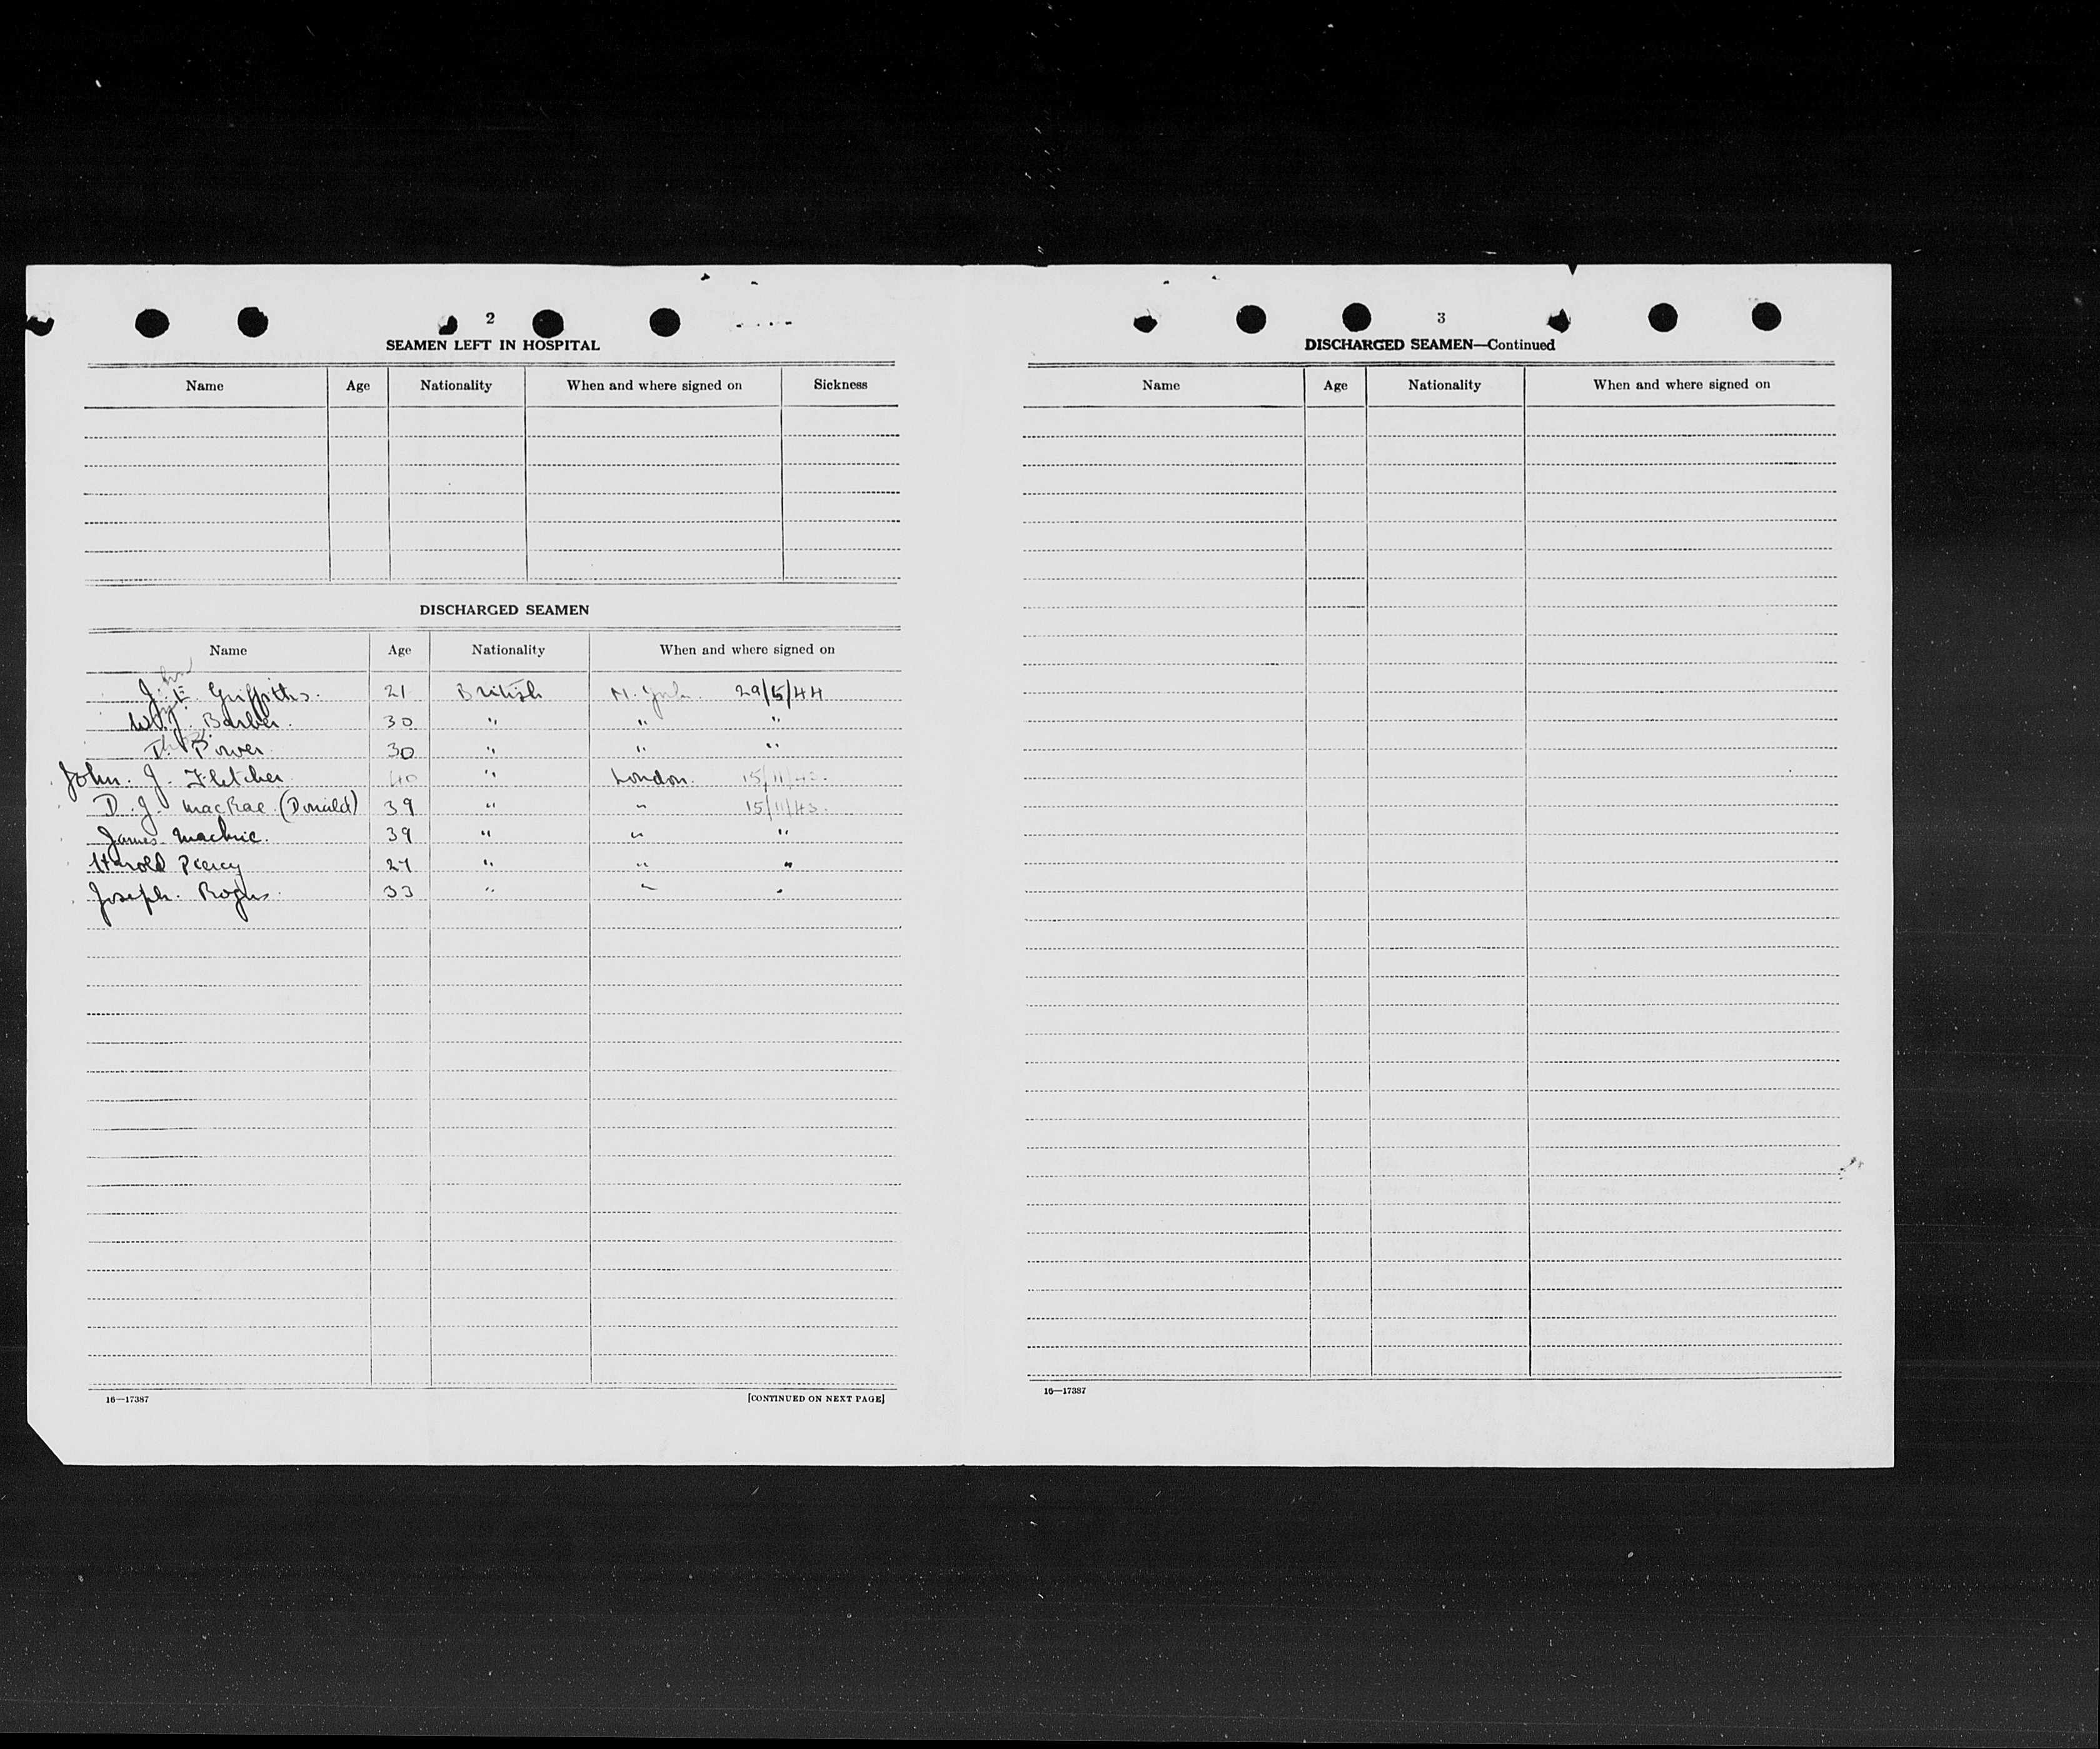 2
SEAMEN LEFT IN HOSPITAL
Name Age Nationality When and where signed on Sickness
DISCHARGED SEAMEN
Name Age Nationality When and where signed on
John E. Griffiths. 21 British N. York. 29/5/44
W. J. Barber. 30 " " "
T. Power. 30 " " "
John. J. Fletcher 40 " London. 15/11/43.
D. J. MacRae (Donald) 39 " " 15/11/43.
James 39 " " "
Harold Piercy 27 " " "
Joseph. Rogers. 33 " " "
16—17387 [CONTINUED ON NEXT PAGE]
3
DISCHARGED SEAMEN—Continued
Name Age Nationality When and where signed on
16—17387